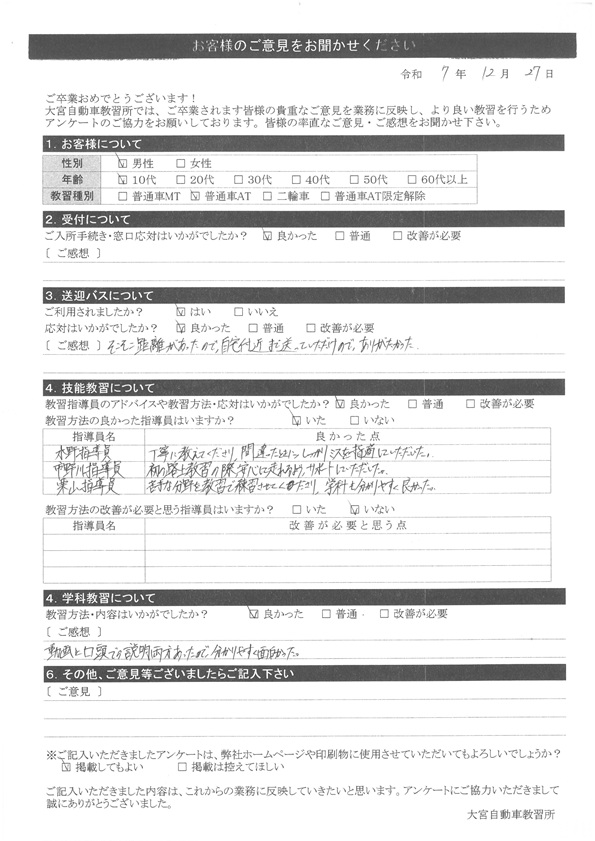 お客様のご意見をお聞かせください
令和 7 年 12 月 27 日
ご卒業おめでとうございます！
大宮自動車教習所では、ご卒業されます皆様の貴重なご意見を業務に反映し、より良い教習を行うため
アンケートのご協力をお願いしております。皆様の率直なご意見・ご感想をお聞かせ下さい。
1. お客様について
性別 ☑ 男性 □ 女性
年齢 ☑ 10代 □ 20代 □ 30代 □ 40代 □ 50代 □ 60代以上
教習種別 □ 普通車MT ☑ 普通車AT □ 二輪車 □ 普通車AT限定解除
2. 受付について
ご入所手続き・窓口応対はいかがでしたか？ ☑ 良かった □ 普通 □ 改善が必要
［ ご感想 ］
3. 送迎バスについて
ご利用されましたか？ ☑ はい □ いいえ
応対はいかがでしたか？ ☑ 良かった □ 普通 □ 改善が必要
［ ご感想 ］ そこそこ距離があったので、自宅付近まで送っていただけたので、ありがたかった。
4. 技能教習について
教習指導員のアドバイスや教習方法・応対はいかがでしたか？ ☑ 良かった □ 普通 □ 改善が必要
教習方法の良かった指導員はいますか？ ☑ いた □ いない
指導員名 良かった点
水野指導員 丁寧に教えてくださり、間違ったところはしっかりミスを指摘していただいた。
中野川指導員 初の路上教習の際、安心に走れるよう、サポートしていただいた。
栗山指導員 苦手な分野を教習で練習させてくださり、学科も分かりやすく良かった。
教習方法の改善が必要と思う指導員はいますか？ □ いた ☑ いない
指導員名 改善が必要と思う点
4. 学科教習について
教習方法・内容はいかがでしたか？ ☑ 良かった □ 普通 □ 改善が必要
［ ご感想 ］
動画と口頭での説明両方あったので分かりやすく面白かった。
6. その他、ご意見等ございましたらご記入下さい
［ ご意見 ］
※ご記入いただきましたアンケートは、弊社ホームページや印刷物に使用させていただいてもよろしいでしょうか？
☑ 掲載してもよい □ 掲載は控えてほしい
ご記入いただきました内容は、これからの業務に反映していきたいと思います。アンケートにご協力いただきまして
誠にありがとうございました。
大宮自動車教習所